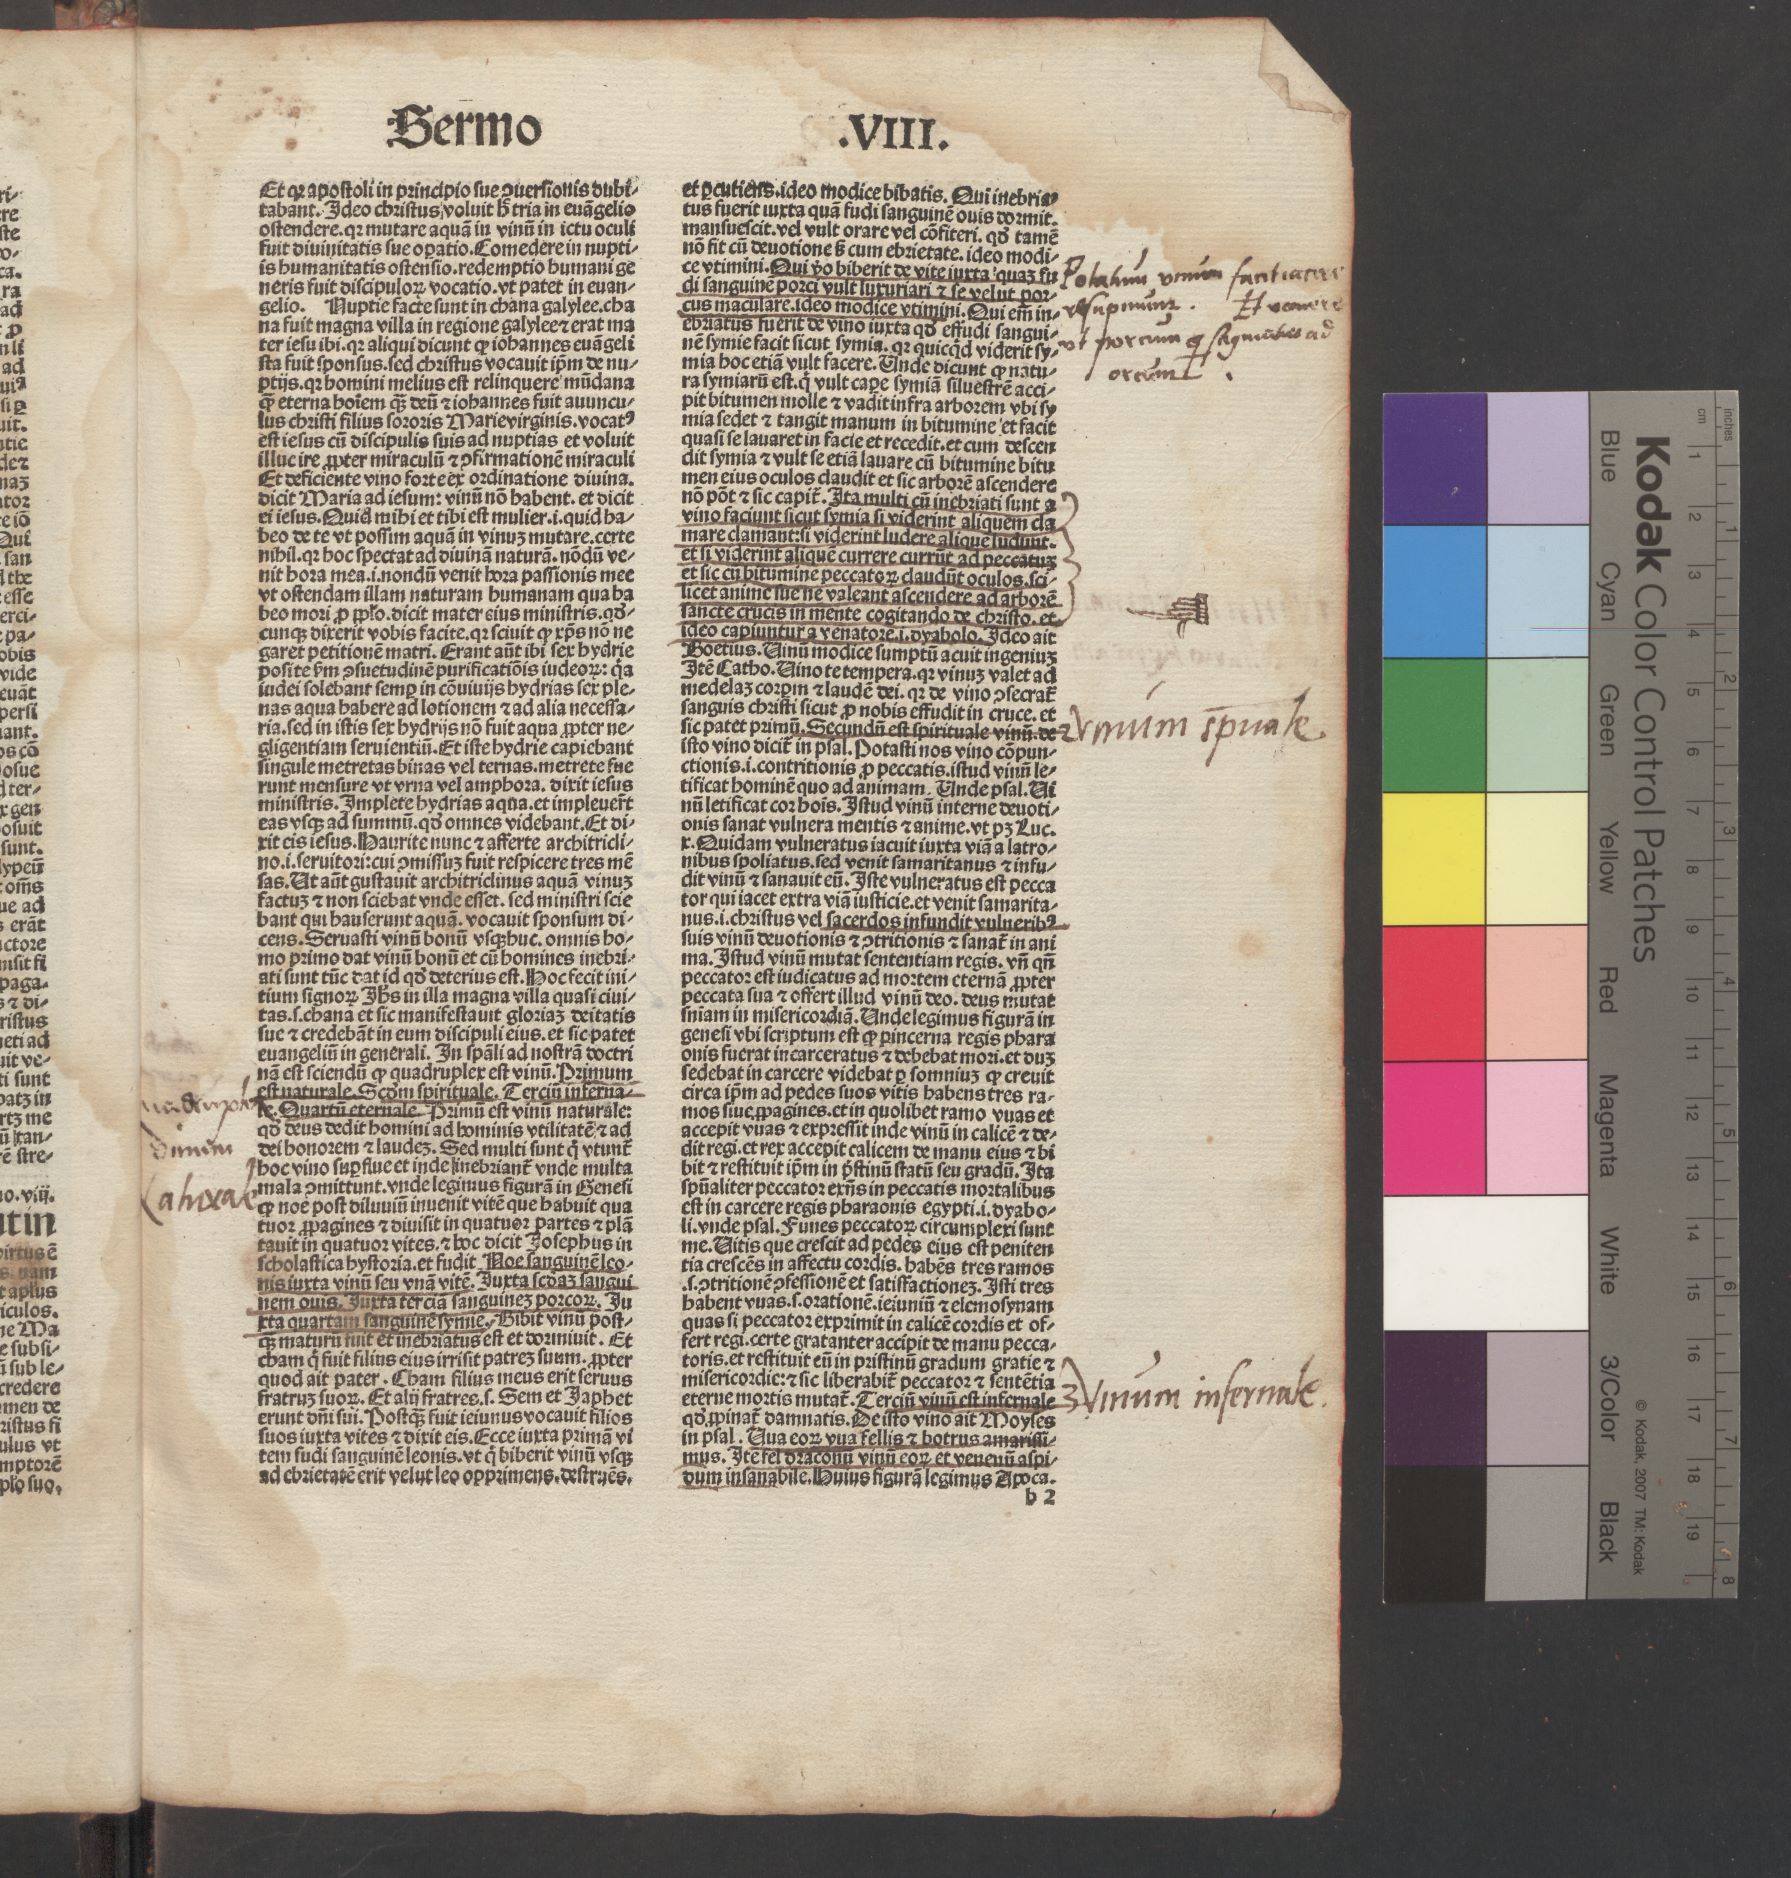 Sermo .VIII.
Et qꝛ apostoli in principio sue ꝯuersionis dubi-
tabant. Ideo christus voluit h̃ tria in euãgelio
ostendere. qꝛ mutare aquã in vinũ in ictu oculi
fuit diuinitatis sue oꝑatio. Comedere in nupti-
is humanitatis ostensio. redemptio humani ge
neris fuit discipuloꝝ vocatio. vt patet in euan-
gelio. Nuptie facte sunt in chana galylee. cha
na fuit magna villa in regione galylee ⁊ erat ma
ter iesu ibi. qꝛ aliqui dicunt ꝙ iohannes euãgeli
sta fuit sponsus. sed christus vocauit ip̃m de nu-
ptijs. qꝛ homini melius est relinquere mũdana
q̃ꝫ eterna hoĩem q̃ꝫ deũ ⁊ iohannes fuit auuncu-
lus christi filius sororis Marie virginis. vocatꝰ
est iesus cũ discipulis suis ad nuptias et voluit
illuc ire ꝓpter miraculũ ⁊ ꝯfirmationẽ miraculi
Et deficiente vino forte ex ordinatione diuina.
dicit Maria ad iesum: vinũ nõ habent. et dicit
ei iesus. Quid mihi et tibi est mulier .i. quid ha-
beo de te vt possim aquã in vinuꝫ mutare. certe
nihil. qꝛ hoc spectat ad diuinã naturã. nõdũ ve-
nit hora mea .i. nondũ venit hora passionis mee
vt ostendam illam naturam humanam qua ha
beo mori ꝓ pp̃lo. dicit mater eius ministris. qd̃-
cunqꝫ dixerit vobis facite. qꝛ sciuit ꝙ xp̃s nõ ne
garet petitionẽ matri. Erant aũt ibi sex hydrie
posite ẽm ꝯsuetudinẽ purificatiõis iudeoꝝ: q̃a
iudei solebant semꝑ in cõuiuijs hydrias sex ple-
nas aqua habere ad lotionem ⁊ ad alia necessa-
ria. sed in istis sex hydrijs nõ fuit aqua ꝓpter ne-
gligentiam seruientiũ. Et iste hydrie capiebant
singule metretas binas vel ternas. metrete fue
runt mensure vt vrna vel amphora. dixit iesus
ministris. Implete hydrias aqua. et impleuer̃t
eas vsqꝫ ad summũ. qd̃ omnes videbant. Et di-
xit eis iesus. Haurite nunc ⁊ afferte architricli-
no .i. seruitori: cui ꝯmissuꝫ fuit respicere tres mẽ
sas. Ut aũt gustauit architriclinus aquã vinuꝫ
factuꝫ ⁊ non sciebat vnde esset. sed ministri scie
bant qui hauserunt aquã. vocauit sponsum di-
cens. Seruasti vinũ bonũ vsqꝫ huc. omnis ho-
mo primo dat vinũ bonũ et cũ homines inebri-
ati sunt tũc dat id qd̃ deterius est. Hoc fecit ini-
tium signoꝝ Jh̃s in illa magna villa quasi ciui-
tas .s. chana et sic manifestauit gloriaꝫ deitatis
sue ⁊ credebãt in eum discipuli eius. et sic patet
euangeliũ in generali. In sp̃ali ad nostrã doctri
nã est sciendũ ꝙ quadruplex est vinũ. Primum
est naturale. Scd̃m spirituale. Terciũ inferna-
le. Quartũ eternale. Primũ est vinũ naturale:
qd̃ deus dedit homini ad hominis vtilitatẽ ⁊ ad
dei honorem ⁊ laudeꝫ. Sed multi sunt q̃ vtunt̃
hoc vino suꝑflue et inde inebriant̃ vnde multa
mala ꝯmittunt. vnde legimus figurã in Genesi
ꝙ noe post diluuiũ inuenit vitẽ que habuit qua
tuor ꝓpagines ⁊ diuisit in quatuor partes ⁊ plã
tauit in quatuor vites. ⁊ hoc dicit Josephus in
scholastica hystoria. et fudit Noe sanguinẽ leo-
nis iuxta vinũ seu vnã vitẽ. Juxta scd̃aꝫ sangui
nem ouis. Juxta terciã sanguineꝫ porcoꝝ. Ju
xta quartam sanguinẽ symie. Bibit vinũ post-
q̃ꝫ maturũ fuit et inebriatus est et dormiuit. Et
cham q̃ fuit filius eius irrisit patreꝫ suum. ꝓpter
quod ait pater. Cham filius meus erit seruus
fratruꝫ suoꝝ. Et alij fratres .s. Sem et Japhet
erunt dñi sui. Postq̃ꝫ fuit ieiunus vocauit filios
suos iuxta vites ⁊ dixit eis. Ecce iuxta primã vi
tem fudi sanguinẽ leonis. vt q̃ biberit vinũ vsqꝫ
ad ebrietatẽ erit velut leo opprimens. destruẽs.
et ꝑcutiens. ideo modice bibatis. Qui inebria-
tus fuerit iuxta quã fudi sanguinẽ ouis dormit.
mansuescit. vel vult orare vel cõfiteri. qd̃ tamẽ
nõ fit cũ deuotione s̃ cum ebrietate. ideo modi-
ce vtimini. Qui ṽo biberit de vite iuxta quaꝫ fu
di sanguinẽ porci vult luxuriari ⁊ se velut por-
cus maculare. ideo modice vtimini. Qui em̃ in-
ebriatus fuerit de vino iuxta qd̃ effudi sangui-
nẽ symie facit sicut symia. qꝛ quicq̃d viderit sy-
mia hoc etiã vult facere. Unde dicunt ꝙ natu-
ra symiarũ est. q̃ vult caꝑe symiã siluestrẽ acci-
pit bitumen molle ⁊ vadit infra arborem vbi sy
mia sedet ⁊ tangit manum in bitumine et facit
quasi se lauaret in facie et recedit. et cum descen
dit symia ⁊ vult se etiã lauare cũ bitumine bitu
men eius oculos claudit et sic arborẽ ascendere
nõ põt ⁊ sic capit̃. Ita multi cũ inebriati sunt a
vino faciunt sicut symia si viderint aliquem cla
mare clamant: si viderint ludere aliquẽ ludunt.
et si viderint aliquẽ currere currũt ad peccatuꝫ
et sic cũ bitumine peccatoꝝ claudũt oculos. sci-
licet anime sue ne valeant ascendere ad arborẽ
sancte crucis in mente cogitando de christo. et
ideo capiuntur a venatore .i. dyabolo. Ideo ait
Boetius. Uinũ modice sumptũ acuit ingeniuꝫ
Itẽ Catho. Uino te tempera. qꝛ vinuꝫ valet ad
medelaꝫ corꝑm ⁊ laudẽ dei. qꝛ de vino ꝯsecrat̃
sanguis christi sicut ꝓ nobis effudit in cruce. et
sic patet primũ. Secundũ est spirituale vinũ. de
isto vino dicit̃ in psal. Potasti nos vino cõpun-
ctionis .i. contritionis ꝓ peccatis. istud vinũ le-
tificat hominẽ quo ad animam. Unde psal. Ui
nũ letificat cor hoĩs. Istud vinũ interne deuoti-
onis sanat vulnera mentis ⁊ anime. vt pꝫ Luc.
x. Quidam vulneratus iacuit iuxta viã a latro-
nibus spoliatus. sed venit samaritanus ⁊ infu-
dit vinũ ⁊ sanauit eũ. Iste vulneratus est pecca
tor qui iacet extra viã iusticie. et venit samarita-
nus .i. christus vel sacerdos infundit vulneribꝰ
suis vinũ deuotionis ⁊ ꝯtritionis ⁊ sanat̃ in ani
ma. Istud vinũ mutat sententiam regis. vñ qñ
peccator est iudicatus ad mortem eternã ꝓpter
peccata sua ⁊ offert illud vinũ deo. deus mutat
sñiam in misericordiã. Unde legimus figurã in
genesi vbi scriptum est ꝙ pincerna regis phara
onis fuerat incarceratus ⁊ debebat mori. et duꝫ
sedebat in carcere videbat ꝑ somniuꝫ ꝙ creuit
circa ip̃m ad pedes suos vitis habens tres ra-
mos siue ꝓpagines. et in quolibet ramo vuas et
accepit vuas ⁊ expressit inde vinũ in calicẽ ⁊ de-
dit regi. et rex accepit calicem de manu eius ⁊ bi
bit ⁊ restituit ip̃m in p̃stinũ statũ seu gradũ. Ita
spũaliter peccator exñs in peccatis mortalibus
est in carcere regis pharaonis egypti .i. dyabo-
li. vnde psal. Funes peccatoꝝ circumplexi sunt
me. Uitis que crescit ad pedes eius est peniten
tia crescẽs in affectu cordis. habẽs tres ramos
.s. ꝯtritionẽ ꝯfessionẽ et satisfactioneꝫ. Isti tres
habent vuas .s. orationẽ. ieiuniũ ⁊ elemosynam
quas si peccator exprimit in calicẽ cordis et of-
fert regi. certe gratanter accipit de manu pecca-
toris. et restituit eũ in pristinũ gradum gratie ⁊
misericordie: ⁊ sic liberabit̃ peccator ⁊ sentẽtia
eterne mortis mutat̃. Terciũ vinũ est infernale
qd̃ ꝓpinat̃ damnatis. De isto vino ait Moyses
in psal. Uua eoꝝ vua fellis ⁊ botrus amarissi-
mus. Itẽ fel draconũ vinũ eoꝝ et venenũ aspi-
dum insanabile. Huius figurã legimus Apoca.
b 2
vinum facit iacere
resupinum. Et venere
vt porcum
2 Vinum sp̃uale
3 Vinum infernale.
Kodak Color Control Patches
Blue Cyan Green Yellow Red Magenta White 3/Color Black
© Kodak, 2007 TM: Kodak
cm 1 2 3 4 5 6 7 8 9 10 11 12 13 14 15 16 17 18 19
inches 1 2 3 4 5 6 7 8